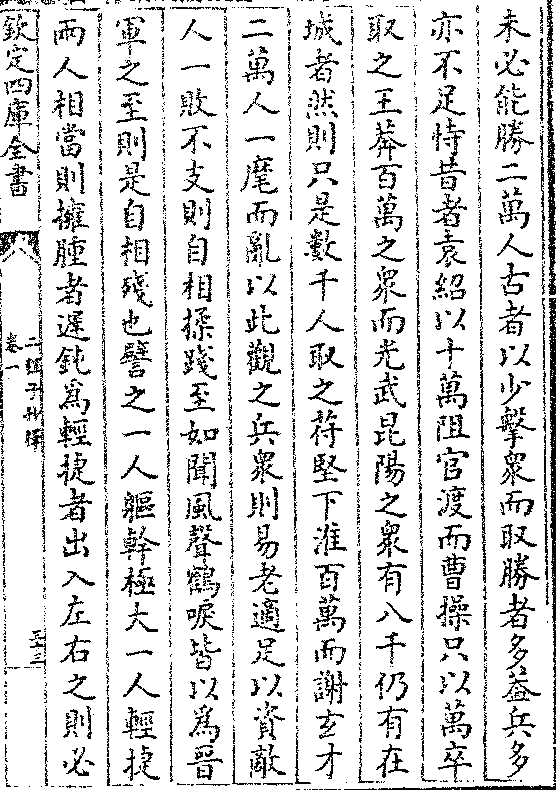 未必能勝二萬人古者以少擊衆而取勝者多葢兵多
亦不足恃昔者袁紹以十萬阻官渡而曹操只以萬卒
取之王莽百萬之衆而光武昆陽之衆有八千仍有在
城者然則只是數千人取之苻堅下淮百萬而謝玄才
二萬人一麾而亂以此觀之兵衆則易老適足以資敵
人一敗不支則自相蹂踐至如聞風聲鶴唳皆以爲晉
軍之至則是自相殘也譬之一人軀幹極大一人輕捷
兩人相當則擁腫者遲鈍爲輕捷者出入左右之則必
欽定四庫全書
二程子抄釋
卷一
三十三